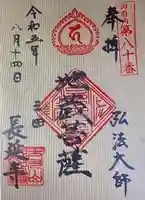 奉拝
第八十番
弘法大師
地蔵菩薩
令和五年
八月十四日
長延寺